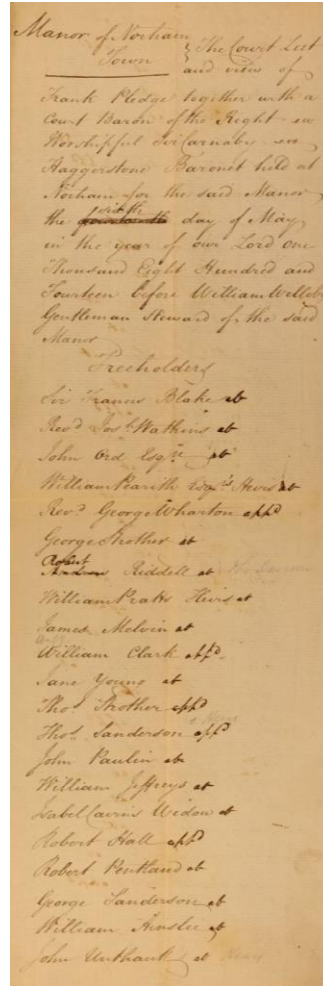 Manor of Norham
Town
The Court Leet
and view of
Frank Pledge together with a
Court Baron of the Right
Worshipful Sir Carnaby
Haggerstone Baronet held at
Norham for the said Manor
the sixth day of May
in the year of our Lord One
Thousand Eight Hundred and
Fourteen before William Willoby
Gentleman steward of the said
Manor
Freeholders
Sir Francis Blake ab
Rev'd Jos.h Watkins ab
John Ord Esq.re ab
William Pearith Esq.rs Heirs ab
Rev.d George Wharton app.d
George Strother ab
Robert Riddell ab
William Pratts Heirs ab
James Melvin ab
William Clark app.d
Jane Young ab
Tho.s Strother app.d
Tho.s Sanderson app.d
John Paulin ab
William Jeffreys ab
Isabel Cairns Widow ab
Robert Hall app.d
Robert Pentland ab
George Sanderson ab
William Ainslie ab
John Unthank ab